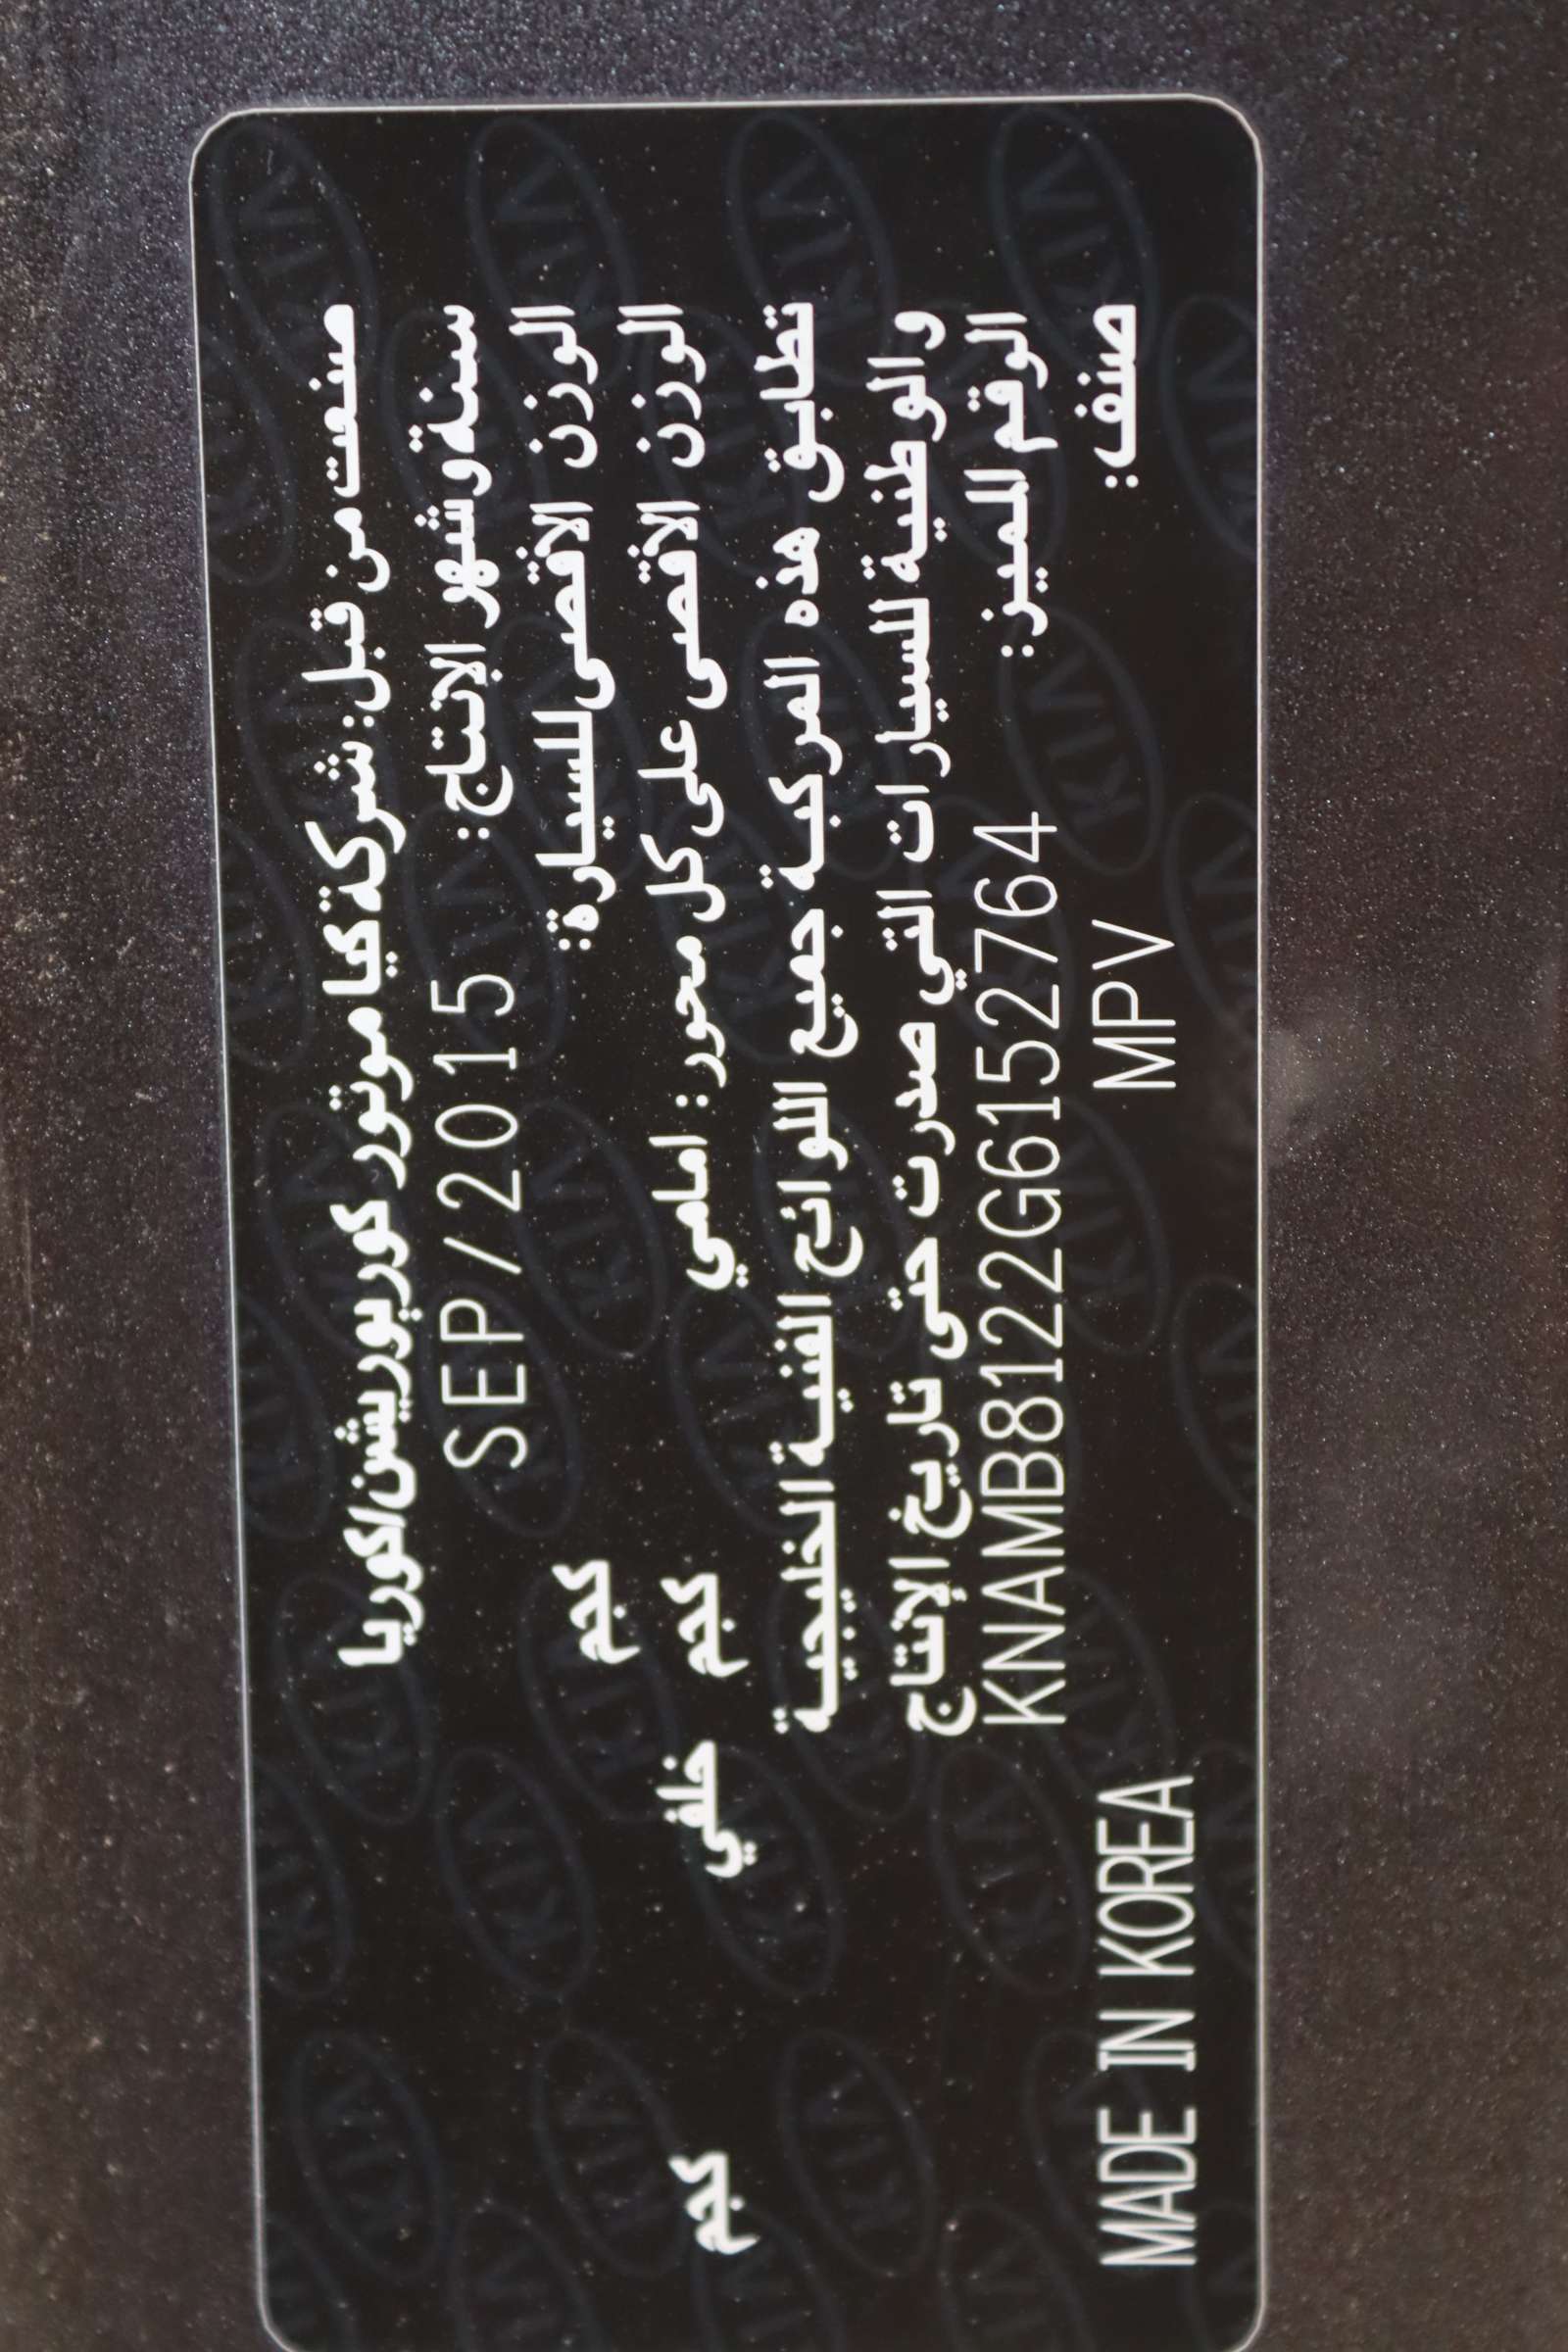 صنعت من قبل: شركة كيا موتور كوربوريشن/كوريا
سنة وشهر الإنتاج: SEP/2015
الوزن الاقصى للسيارة: كجم
الوزن الاقصى على كل محور: امامي كجم خلفي كجم
تطابق هذه المركبة جميع اللوائح الفنية الخليجية
والوطنية للسيارات التي صدرت حتى تاريخ الإنتاج
الوقم المميز: KNAMB8122G6152764
صنف: MPV MADE IN KOREA